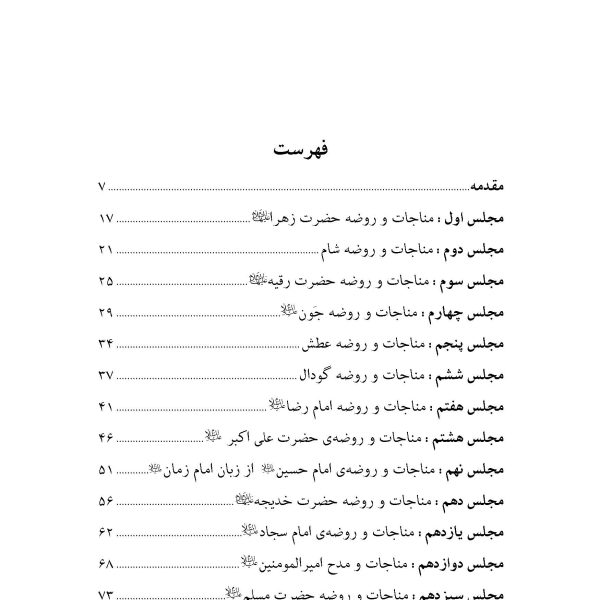 فهرست
مقدمه ........ ۷
مجلس اول : مناجات و روضه حضرت زهرا ........ ۱۷
مجلس دوم : مناجات و روضه شام ........ ۲۱
مجلس سوم : مناجات و روضه حضرت رقیه ........ ۲۵
مجلس چهارم : مناجات و روضه جَون ........ ۲۹
مجلس پنجم : مناجات و روضه عطش ........ ۳۴
مجلس ششم : مناجات و روضه گودال ........ ۳۷
مجلس هفتم : مناجات و روضه امام رضا ........ ۴۱
مجلس هشتم : مناجات و روضه‌ی حضرت علی اکبر ........ ۴۶
مجلس نهم : مناجات و روضه‌ی امام حسین از زبان امام زمان ........ ۵۱
مجلس دهم : مناجات و روضه حضرت خدیجه ........ ۵۶
مجلس یازدهم : مناجات و روضه‌ی امام سجاد ........ ۶۲
مجلس دوازدهم : مناجات و مدح امیرالمومنین ........ ۶۸
مجلس سیزدهم : مناجات و روضه حضرت مسلم ........ ۷۳